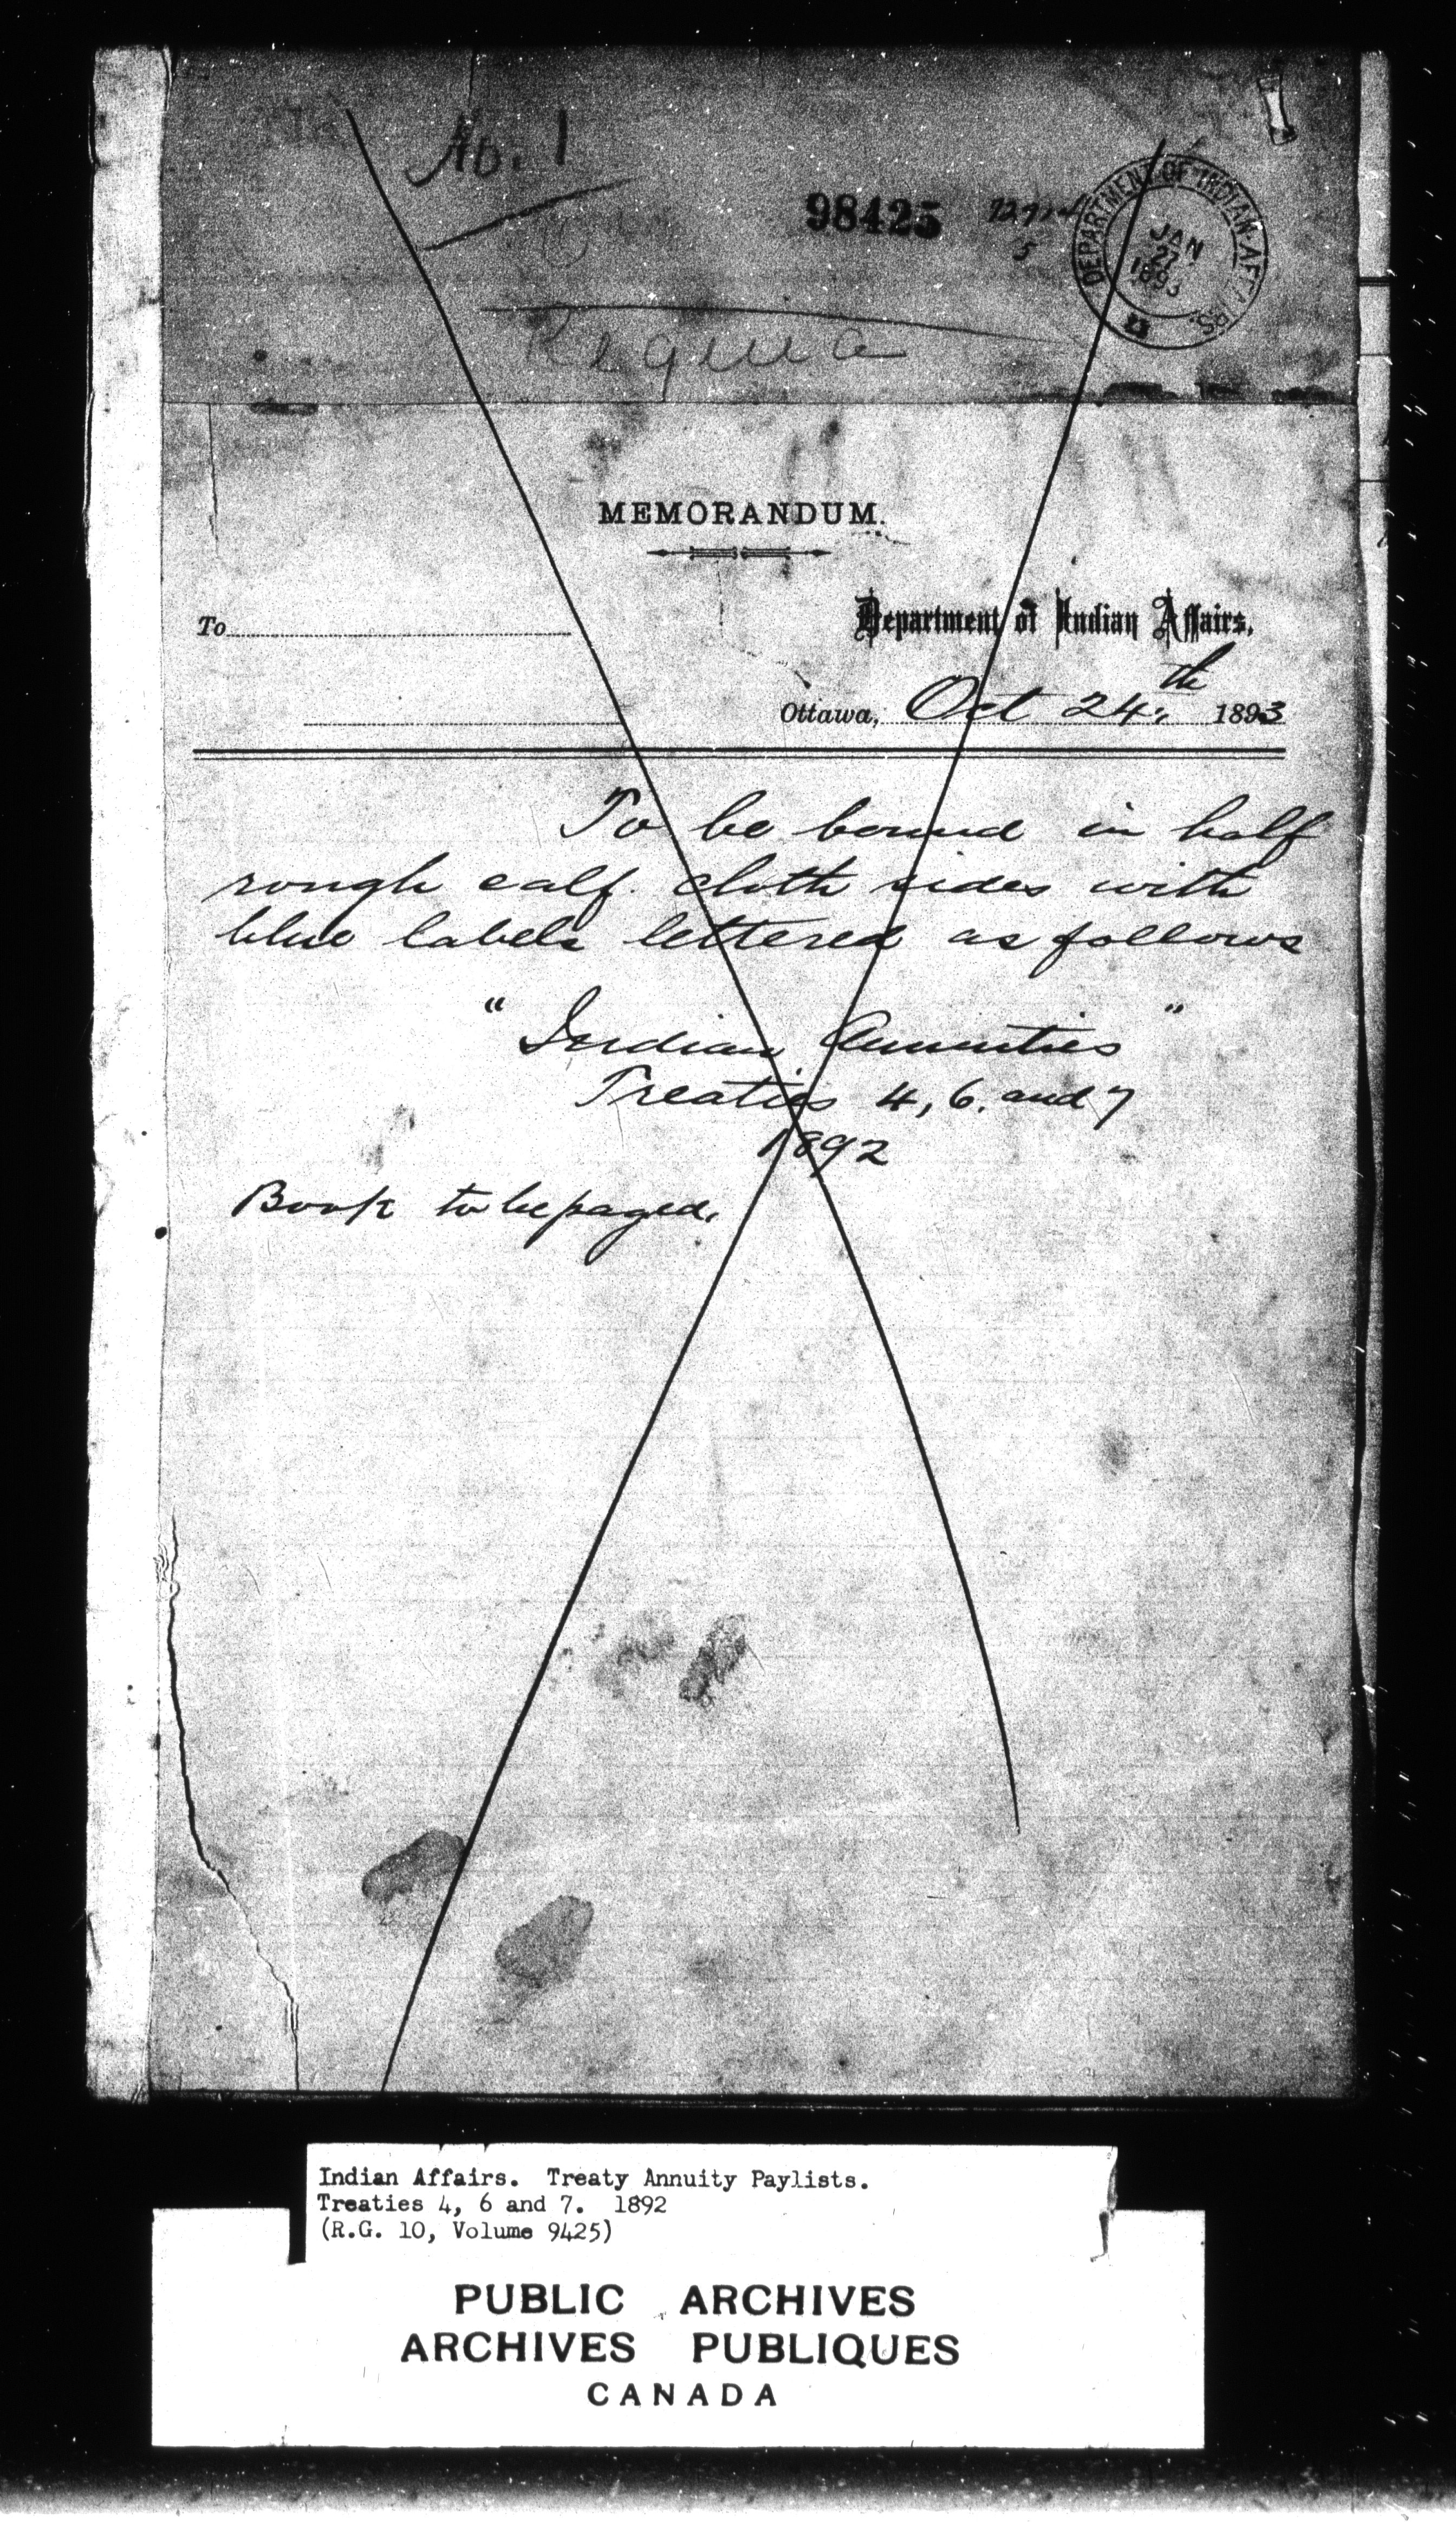 No. 1
98425
DEPARTMENT OF INDIAN AFFAIRS.
JAN
27
1893
Regina
MEMORANDUM.
To
Department of Indian Affairs,
Ottawa, Oct 24th 1893
To be bound in half
rough calf. cloth sides with
blue labels lettered as follows
"Indian Annuities"
Treaties 4, 6. and 7
1892
Book to be paged.
Indian Affairs. Treaty Annuity Paylists.
Treaties 4, 6 and 7. 1892
(R.G. 10, Volume 9425)
PUBLIC ARCHIVES
ARCHIVES PUBLIQUES
CANADA